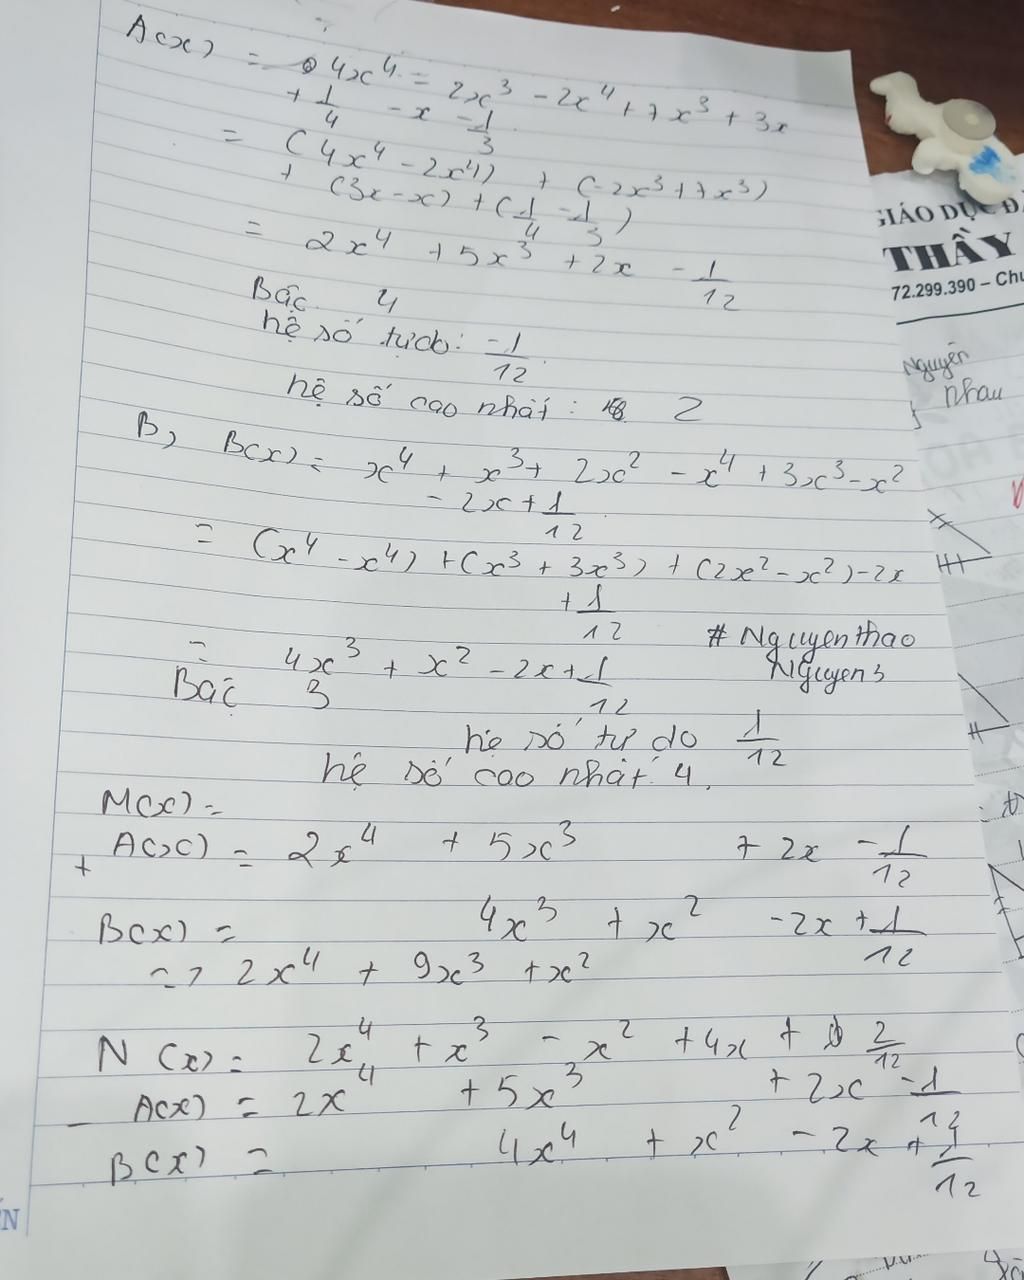 A(x) = 4x⁴ = 2x³ - 2x⁴ + 7x³ + 3x
+ 1/4 - x - 1/3
= (4x⁴ - 2x⁴) + (-2x³ + 7x³)
+ (3x - x) + (1/4 - 1/3)
= 2x⁴ + 5x³ + 2x - 1/12
Bậc 4
hệ số tự do: -1/12
hệ số cao nhất: 2
B, B(x) = x⁴ + x³ + 2x² - x⁴ + 3x³ - x²
- 2x + 1/12
= (x⁴ - x⁴) + (x³ + 3x³) + (2x² - x²) - 2x
+ 1/12
= 4x³ + x² - 2x + 1/12
# Nguyenthao
Nguyen3
Bậc 3
hệ số tự do 1/12
hệ số cao nhất 4.
M(x) =
+ A(x) = 2x⁴ + 5x³ + 2x - 1/12
B(x) = 4x³ + x² - 2x + 1/12
=> 2x⁴ + 9x³ + x²
N (x) = 2x⁴ + x³ - x² + 4x + 2/12
- A(x) = 2x⁴ + 5x³ + 2x - 1/12
B(x) = 4x⁴ + x² - 2x + 1/12
GIÁO DỤC
THẦY
72.299.390 – Chu
Nguyên
nhau